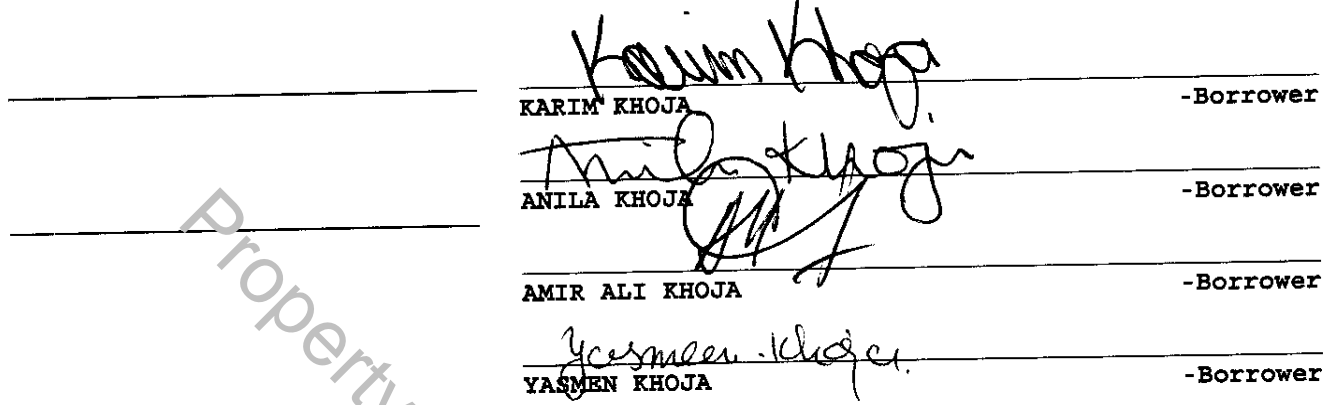 Karim Khoja
KARIM KHOJA -Borrower
Anila Khoja
ANILA KHOJA -Borrower
AMIR ALI KHOJA -Borrower
Yasmeen Khoja
YASMEN KHOJA -Borrower
Property